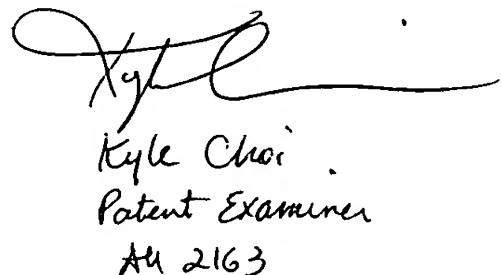 Kyle Choi
Patent Examiner
AU 2163